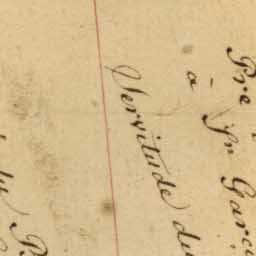 Pre
à Sr Garc
Servitude du
du P